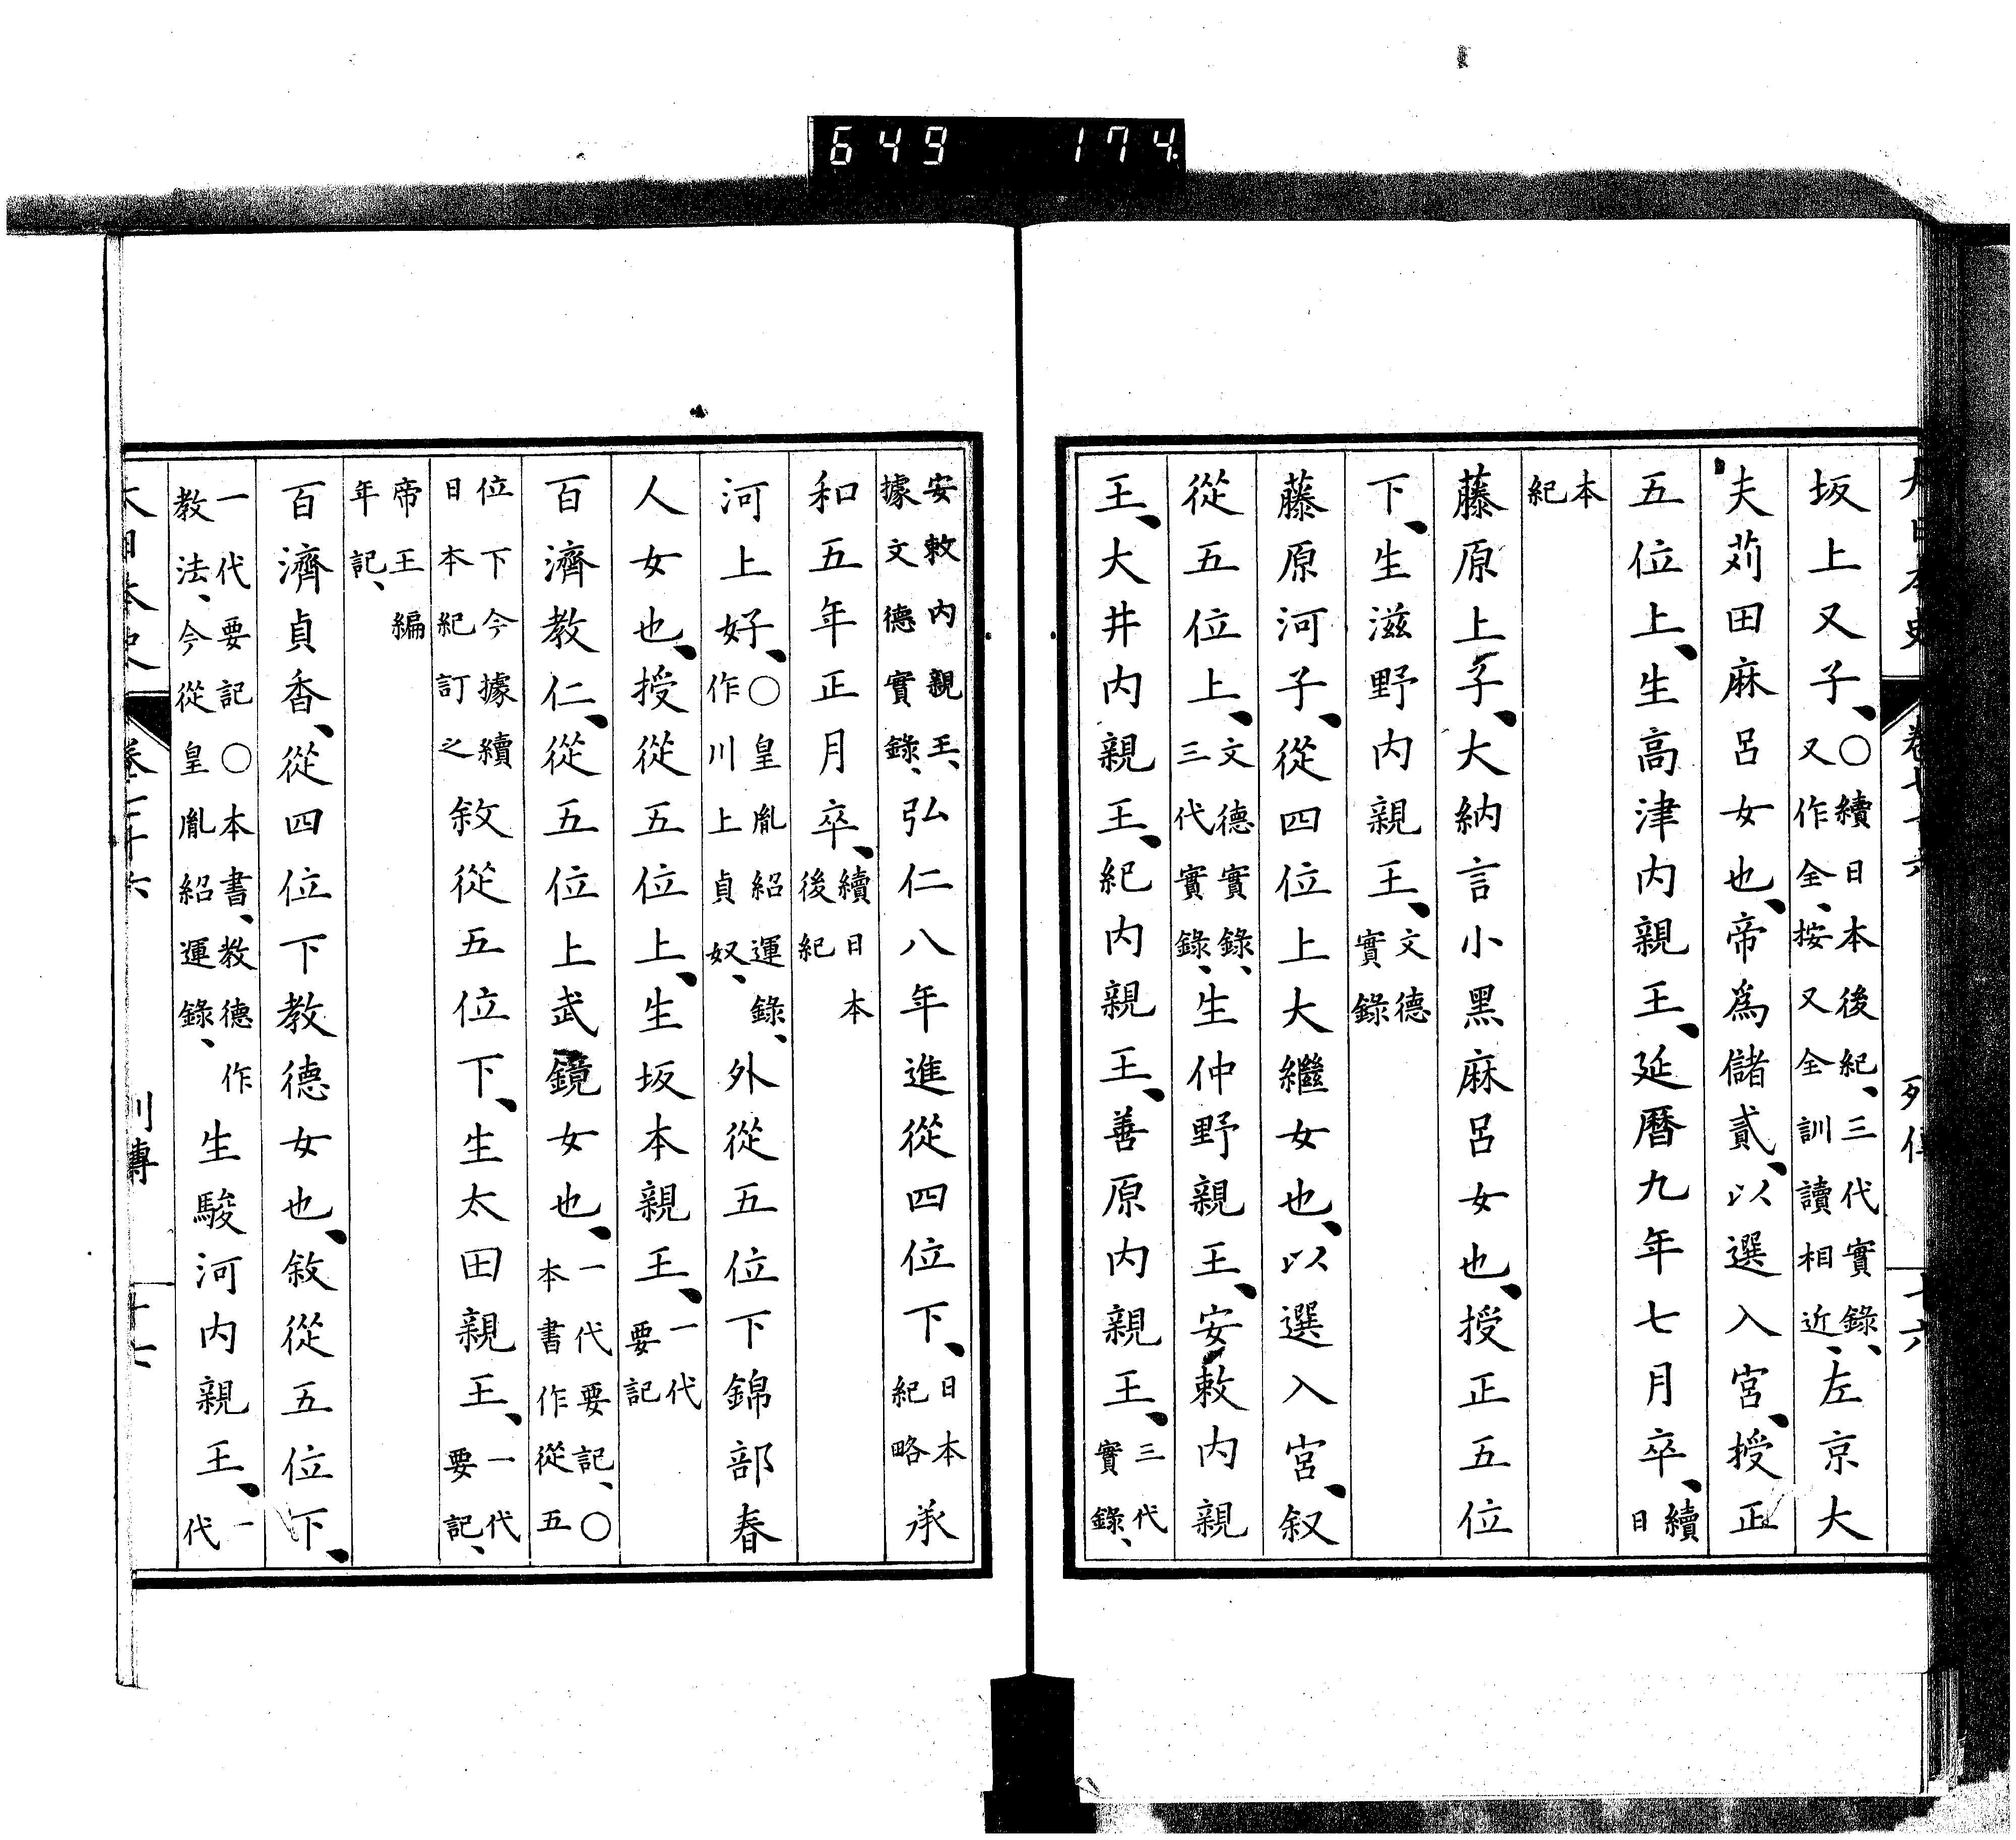 649 174
坂上又子、〇續日本後紀、三代實錄、又作全、按又全訓讀相近、左京大
夫苅田麻呂女也、帝爲儲貳、以選入宮、授正
五位上、生高津内親王、延曆九年七月卒、續日
本紀
藤原上子、大納言小黑麻呂女也、授正五位
下、生滋野内親王、文德實錄
藤原河子、從四位上大繼女也、以選入宮、叙
從五位上、文德實錄、三代實錄、生仲野親王、安敕内親
王、大井内親王、紀内親王、善原内親王、三代實錄、
安敕内親王、據文德實錄、弘仁八年進從四位下、日本紀略承
和五年正月卒、續日本後紀
河上好、〇皇胤紹運錄、作川上貞奴、外從五位下錦部春
人女也、授從五位上、生坂本親王、一代要記
百濟教仁、從五位上武鏡女也、一代要記、〇本書作從五
位下今據續日本紀訂之敘從五位下、生太田親王、一代要記、
帝王編年記、
百濟貞香、從四位下教德女也、敘從五位下、
一代要記〇本書、教德作教法、今從皇胤紹運錄、生駿河内親王、一代